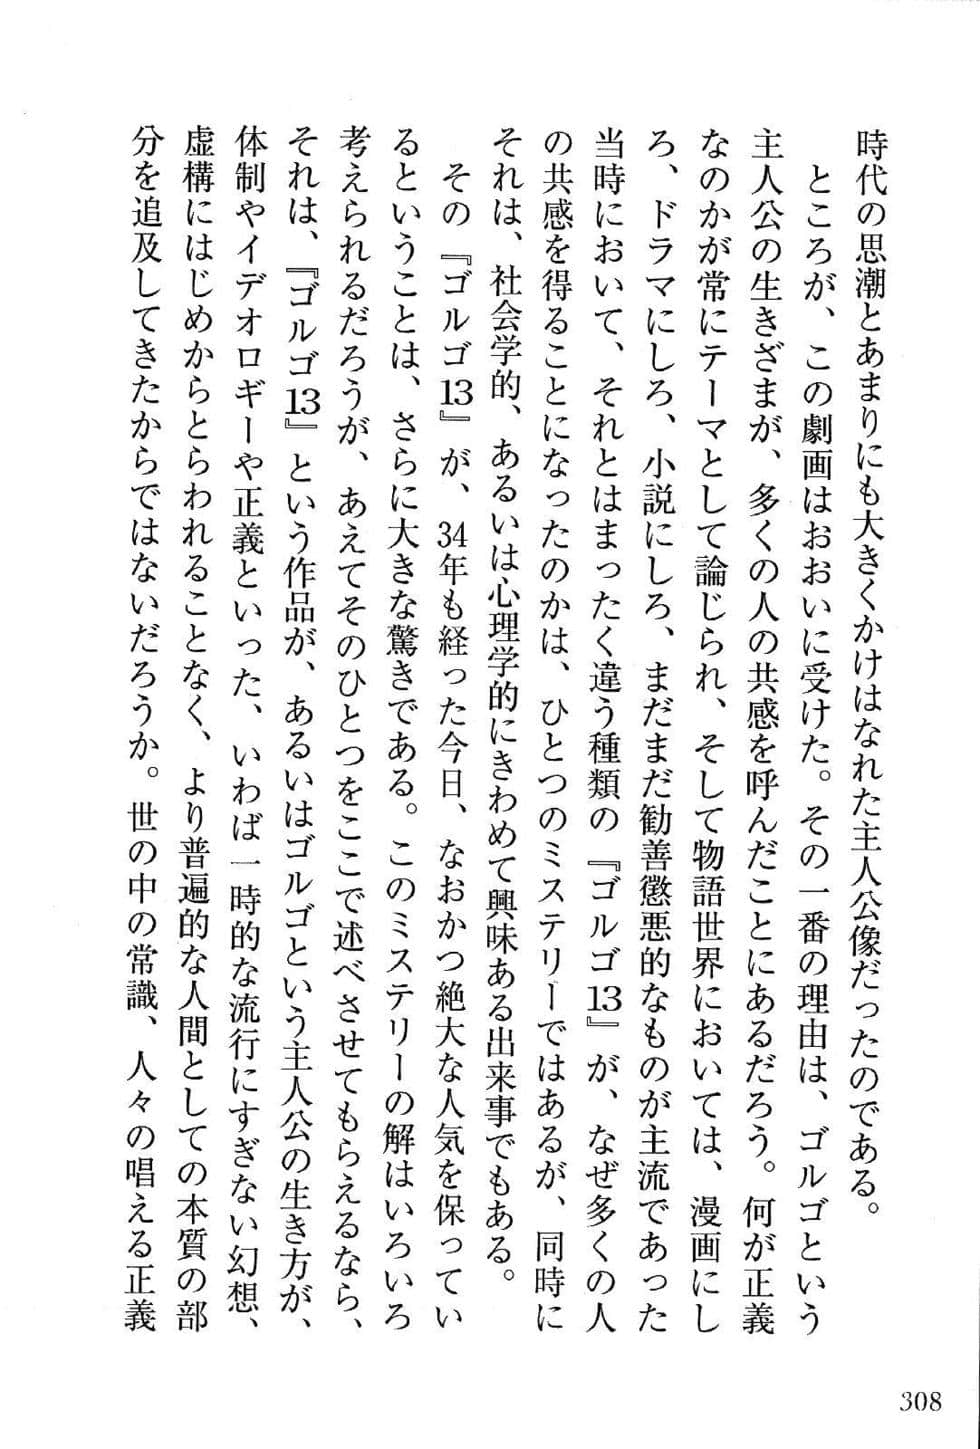 時代の思潮とあまりにも大きくかけはなれた主人公像だったのである。
ところが、この劇画はおおいに受けた。その一番の理由は、ゴルゴという
主人公の生きざまが、多くの人の共感を呼んだことにあるだろう。何が正義
なのかが常にテーマとして論じられ、そして物語世界においては、漫画にし
ろ、ドラマにしろ、小説にしろ、まだまだ勧善懲悪的なものが主流であった
当時において、それとはまったく違う種類の『ゴルゴ13』が、なぜ多くの人
の共感を得ることになったのかは、ひとつのミステリーではあるが、同時に
それは、社会学的、あるいは心理学的にきわめて興味ある出来事でもある。
その『ゴルゴ13』が、34年も経った今日、なおかつ絶大な人気を保ってい
るということは、さらに大きな驚きである。このミステリーの解はいろいろ
考えられるだろうが、あえてそのひとつをここで述べさせてもらえるなら、
それは、『ゴルゴ13』という作品が、あるいはゴルゴという主人公の生き方が、
体制やイデオロギーや正義といった、いわば一時的な流行にすぎない幻想、
虚構にはじめからとらわれることなく、より普遍的な人間としての本質の部
分を追及してきたからではないだろうか。世の中の常識、人々の唱える正義
308